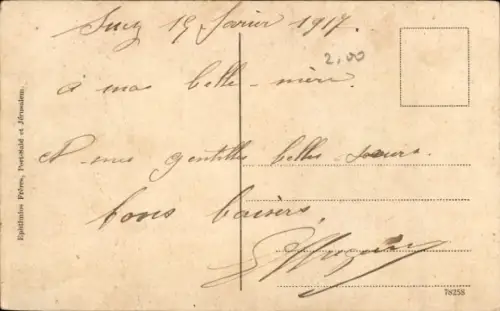 Suez 15 février 1917.
2,00
à ma belle-mère.
A mes gentilles belles sœurs.
bons baisers,
Ephtimios Frères, Port-Said et Jérusalem.
78258